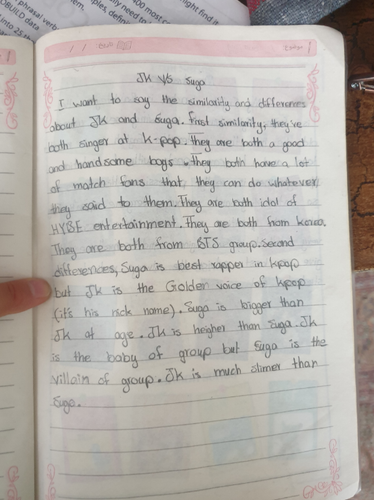 phrasal verb
OBUILD data
400 most
might find it
JK V/S Suga
I want to say the similarity and differences
about JK and Suga. Fast similarity, they've
both singer at k-pop. They are both a good
and handsome boys. they both have a lot
of match fans that, they can do whatever
they said to them. They are both idol of
HYBE entertainment. They are both from korea.
They are both from BTS group. Second
differences, Suga is best rapper in kpop
but JK is the Golden voice of kpop
(it's his nick name). Suga is bigger than
JK at age. JK is heigher than Suga. JK
is the baby of group but Suga is the
villain of group. JK is much slimer than
Suga.